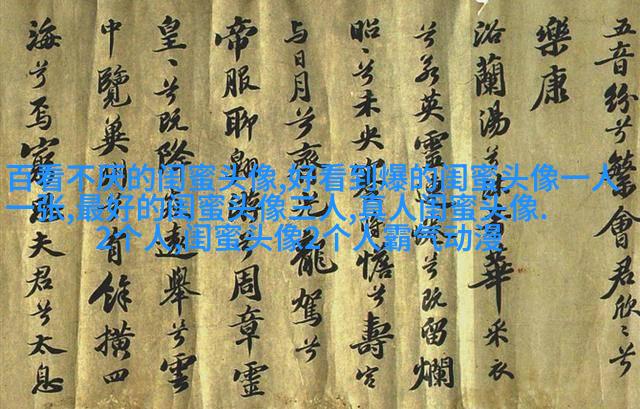 五音纷兮繁會君欣〻兮
樂康
浴蘭湯兮華采衣
兮若英靈兮既留爛
昭〻兮未央憺兮壽宮
与日月兮齊光龍駕兮
帝服聊翱兮周章靈
皇〻兮既降遠舉兮雲
中覽冀有餘橫四
海兮焉窮夫君兮太息
百看不厌的闺蜜头像,好看到爆的闺蜜头像一人
一张,最好的闺蜜头像二人,真人闺蜜头像.
2个人,闺蜜头像2个人霸气动漫